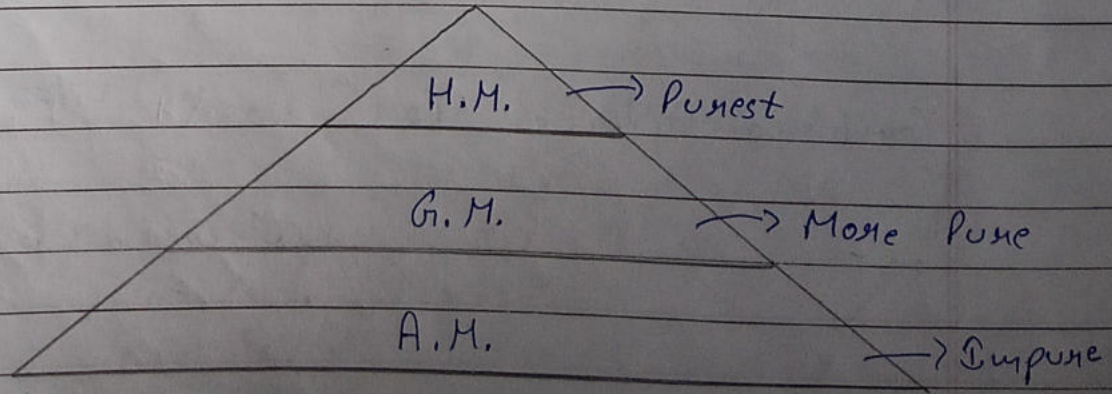 H.M. → Purest
G.M. → More Pure
A.M. → Impure